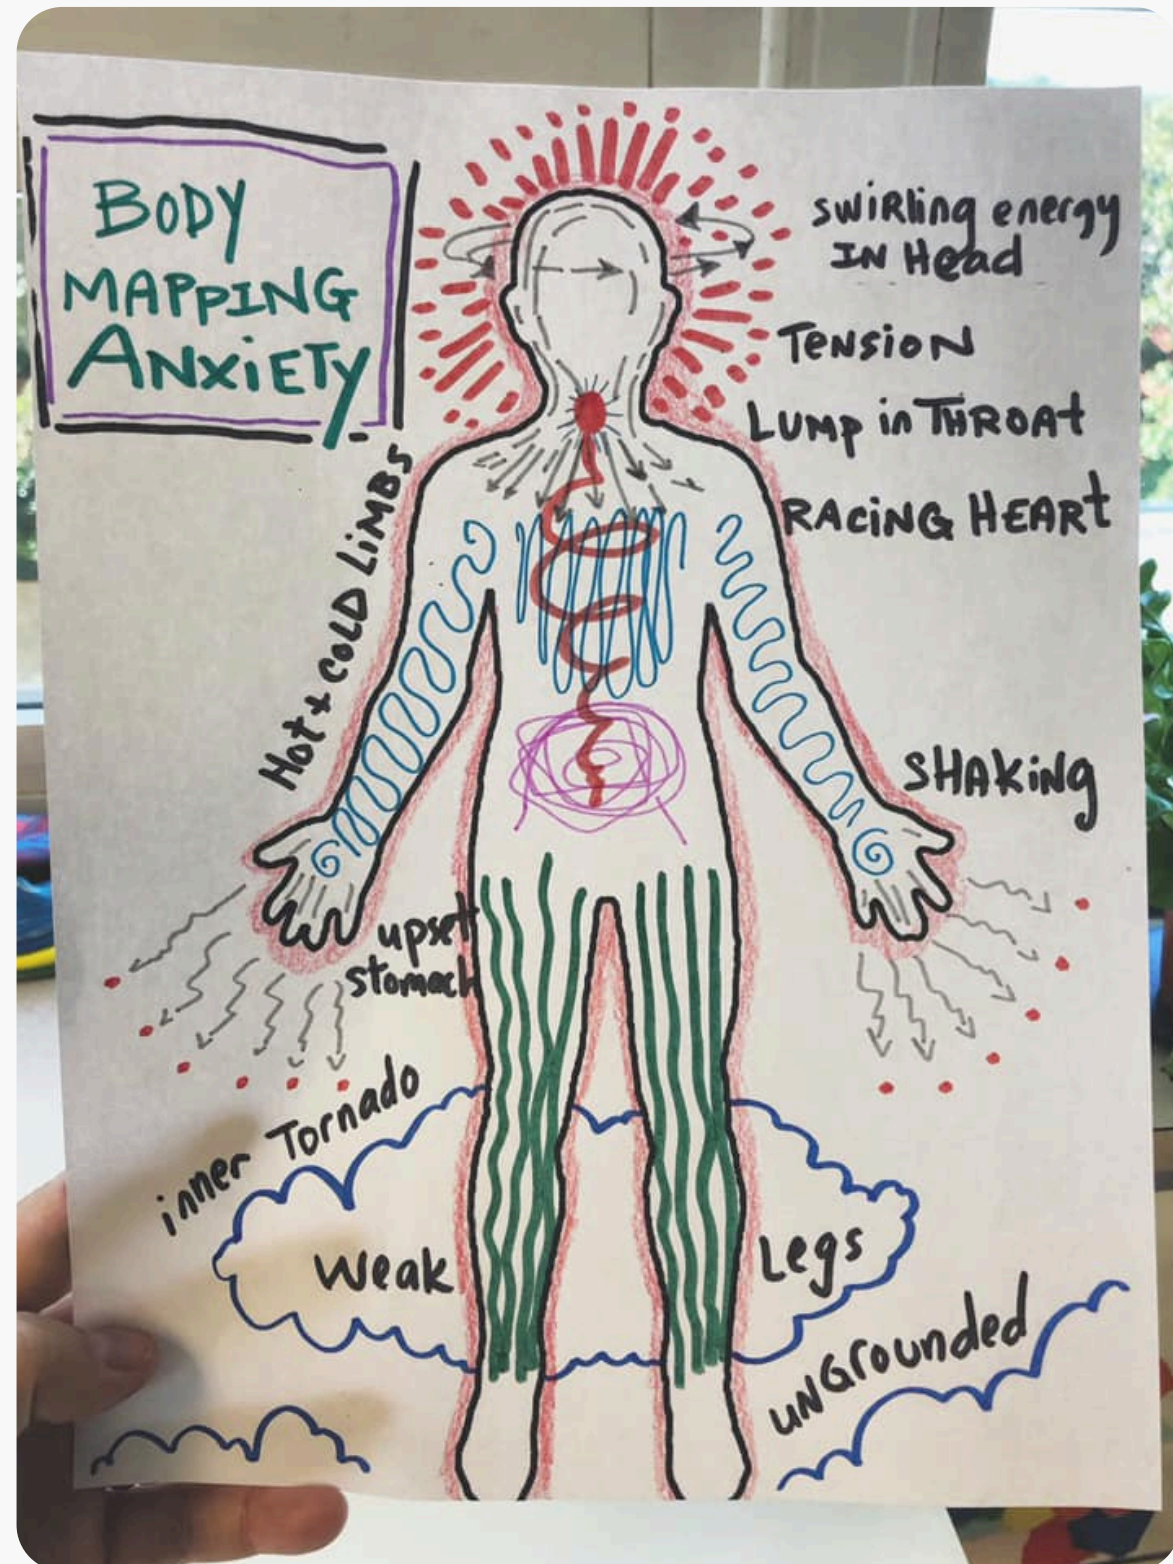 BODY
MAPPING
ANXiETY
swiRling energy
IN Head
TENSION
LUMP in THROAt
RACiNG HEARt
Hot + COLD LiMBS
SHAKiNg
upset
stomach
inner Tornado
Weak Legs
uNGrounded